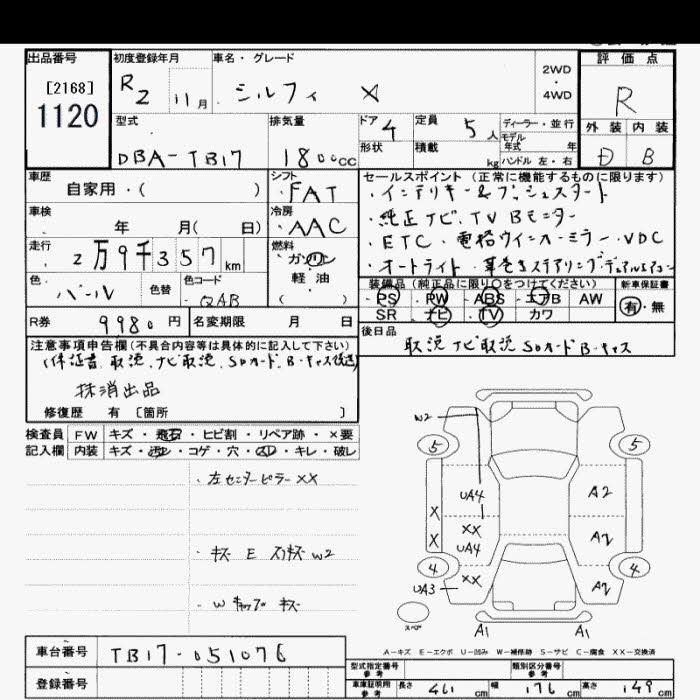 出品番号
[2168]
1120
初度登録年月
R2 11月
車名・グレード
シルフィ X
2WD
・
4WD
評価点
R
外装 内装
D B
型式
DBA-TB17
排気量
1800cc
ドア
4
形状
定員
5人
積載
kg
ディーラー・並行
モデル
年式 年
ハンドル 左・右
車歴
自家用・( )
シフト
FAT
車検
年 月( 日)
冷房
AAC
走行
2万9千357km
燃料
ガソリン
軽油
( )
色
パール
色替
色コード
QAB
R券 9980円
名変期限 月 日
セールスポイント(正常に機能するものに限ります)
・インテリキー&プッシュスタート
・純正ナビ、TV Bモニター
・ETC・電格ウインカーミラー・VDC
・オートライト 革巻きステアリング・デュアルエアコン
装備品(純正品に限り〇をつけてください)
新車保証書
PS PW ABS エアB AW
SR ナビ TV カワ
有・無
後日品
取説 ナビ取説 SDカード B-キャス
注意事項申告欄(不具合内容等は具体的に記入して下さい)
(保証書、取説、ナビ取説、SDカード、B-キャス後送)
抹消出品
修復歴 有 〔箇所 〕
検査員 FW キズ・飛石・ヒビ割・リペア跡・×要
記入欄 内装 キズ・汚れ・コゲ・穴・スレ・キレ・破レ
・左センターピラーXX
・キズ E スリキズ W2
・Wキャップ キズ
W2
5 5
UA4 A2
X XX A2
X UA4
4 XX 4
UA3 A2
スペア
A1 A1
A-キズ E-エクボ U-凹み W-補修跡 S-サビ C-腐食 XX-交換済
車台番号 TB17-051076
登録番号
型式指定番号
参考
類別区分番号
参考
車庫証明用
参考
長さ 461cm 幅 176cm 高さ 149cm